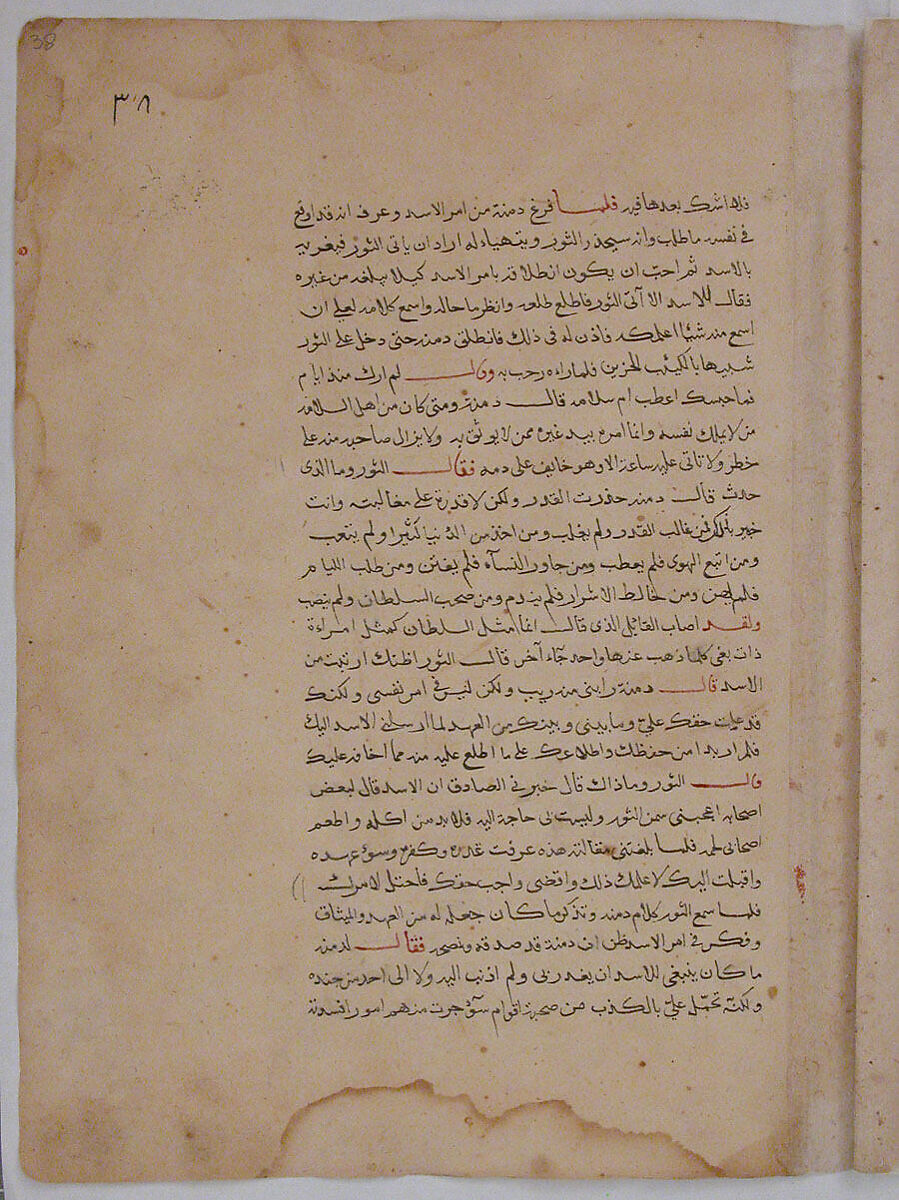 38
٣٨
فلا اشك بعدها فيه فلما فرغ دمنة من امر الاسد وعرف انه قد اوقع
في نفسه ما طلب وانه سيحذر الثور ويتهياء له اراد ان ياتى الثور فيغريه
بالاسد ثم احب ان يكون انطلاقه بامر الاسد كيلا يبلغه من غيره
فقال للاسد الا آتى الثور فاطلع طلعه وانظر ما حاله واسمع كلامه لعلى ان
اسمع منه شيئا اعلمكه فاذن له فى ذلك فانطلق دمنه حتى دخل على الثور
شبيها بالكئيب الحزين فلما راءه رحب به وقال لم ارك منذ ايام
فما حبسك اعطب ام سلامه قال دمنة ومتى كان من اهل السلامه
من لا يملك نفسه وانما امره بيد غيره ممن لا يوثق به ولا يزال صاحبه منه على
خطر ولا تاتى عليه ساعة الا وهو خايف على دمه فقال الثور وما الذى
حدث قال دمنه حذرت القدر ولكن لا قدرة على مغالبته وانت
خبير بانك فمن غالب القدر ولم يغلب ومن اخذ من الدنيا كثيرا ولم يتعب
ومن اتبع الهوى فلم يعطب ومن جاور النسآء فلم يفتن ومن طلب الليام
فلم يهن ومن خالط الاشرار فلم يندم ومن صحب السلطان ولم ينصب
ولقد اصاب القائيل الذى قال انما مثل السلطان كمثل امراءة
ذات بغى كلما ذهب عنها واحد جآء آخر قال الثور اظنك ارتبت من
الاسد قال دمنة رابنى منه ريب ولكن ليس فى امر نفسى ولكنك
قد علمت حقك علىّ وما بينى وبينك من العهد لما ارسلنى الاسد اليك
فلم ار بدا من حفظك واطلاعك على ما اطلع عليه منه مما اخافه عليك
قال الثور وما ذاك قال خبرنى الصادق ان الاسد قال لبعض
اصحابه اعجبنى سمن الثور وليست لى حاجة اليه فلا بد من اكله واطعم
اصحابى لحمه فلما بلغتنى مقالته هذه عرفت غدره وكفره وسوء عهده
واقبلت اليك لاعلمك ذلك واقضى واجب حقك فاحتل لامرك
فلما سمع الثور كلام دمنه وتذكر ما كان جعله له من العهد والميثاق
وفكر فى امر الاسد ظن ان دمنة قد صدقه ونصحه فقال لدمنه
ما كان ينبغى للاسد ان يغدر بى ولم اذنب اليه ولا الى احد من جنده
ولكنه تحمّل علىّ بالكذب من صحبة اقوام سوٓء جرت منهم امور افسدته